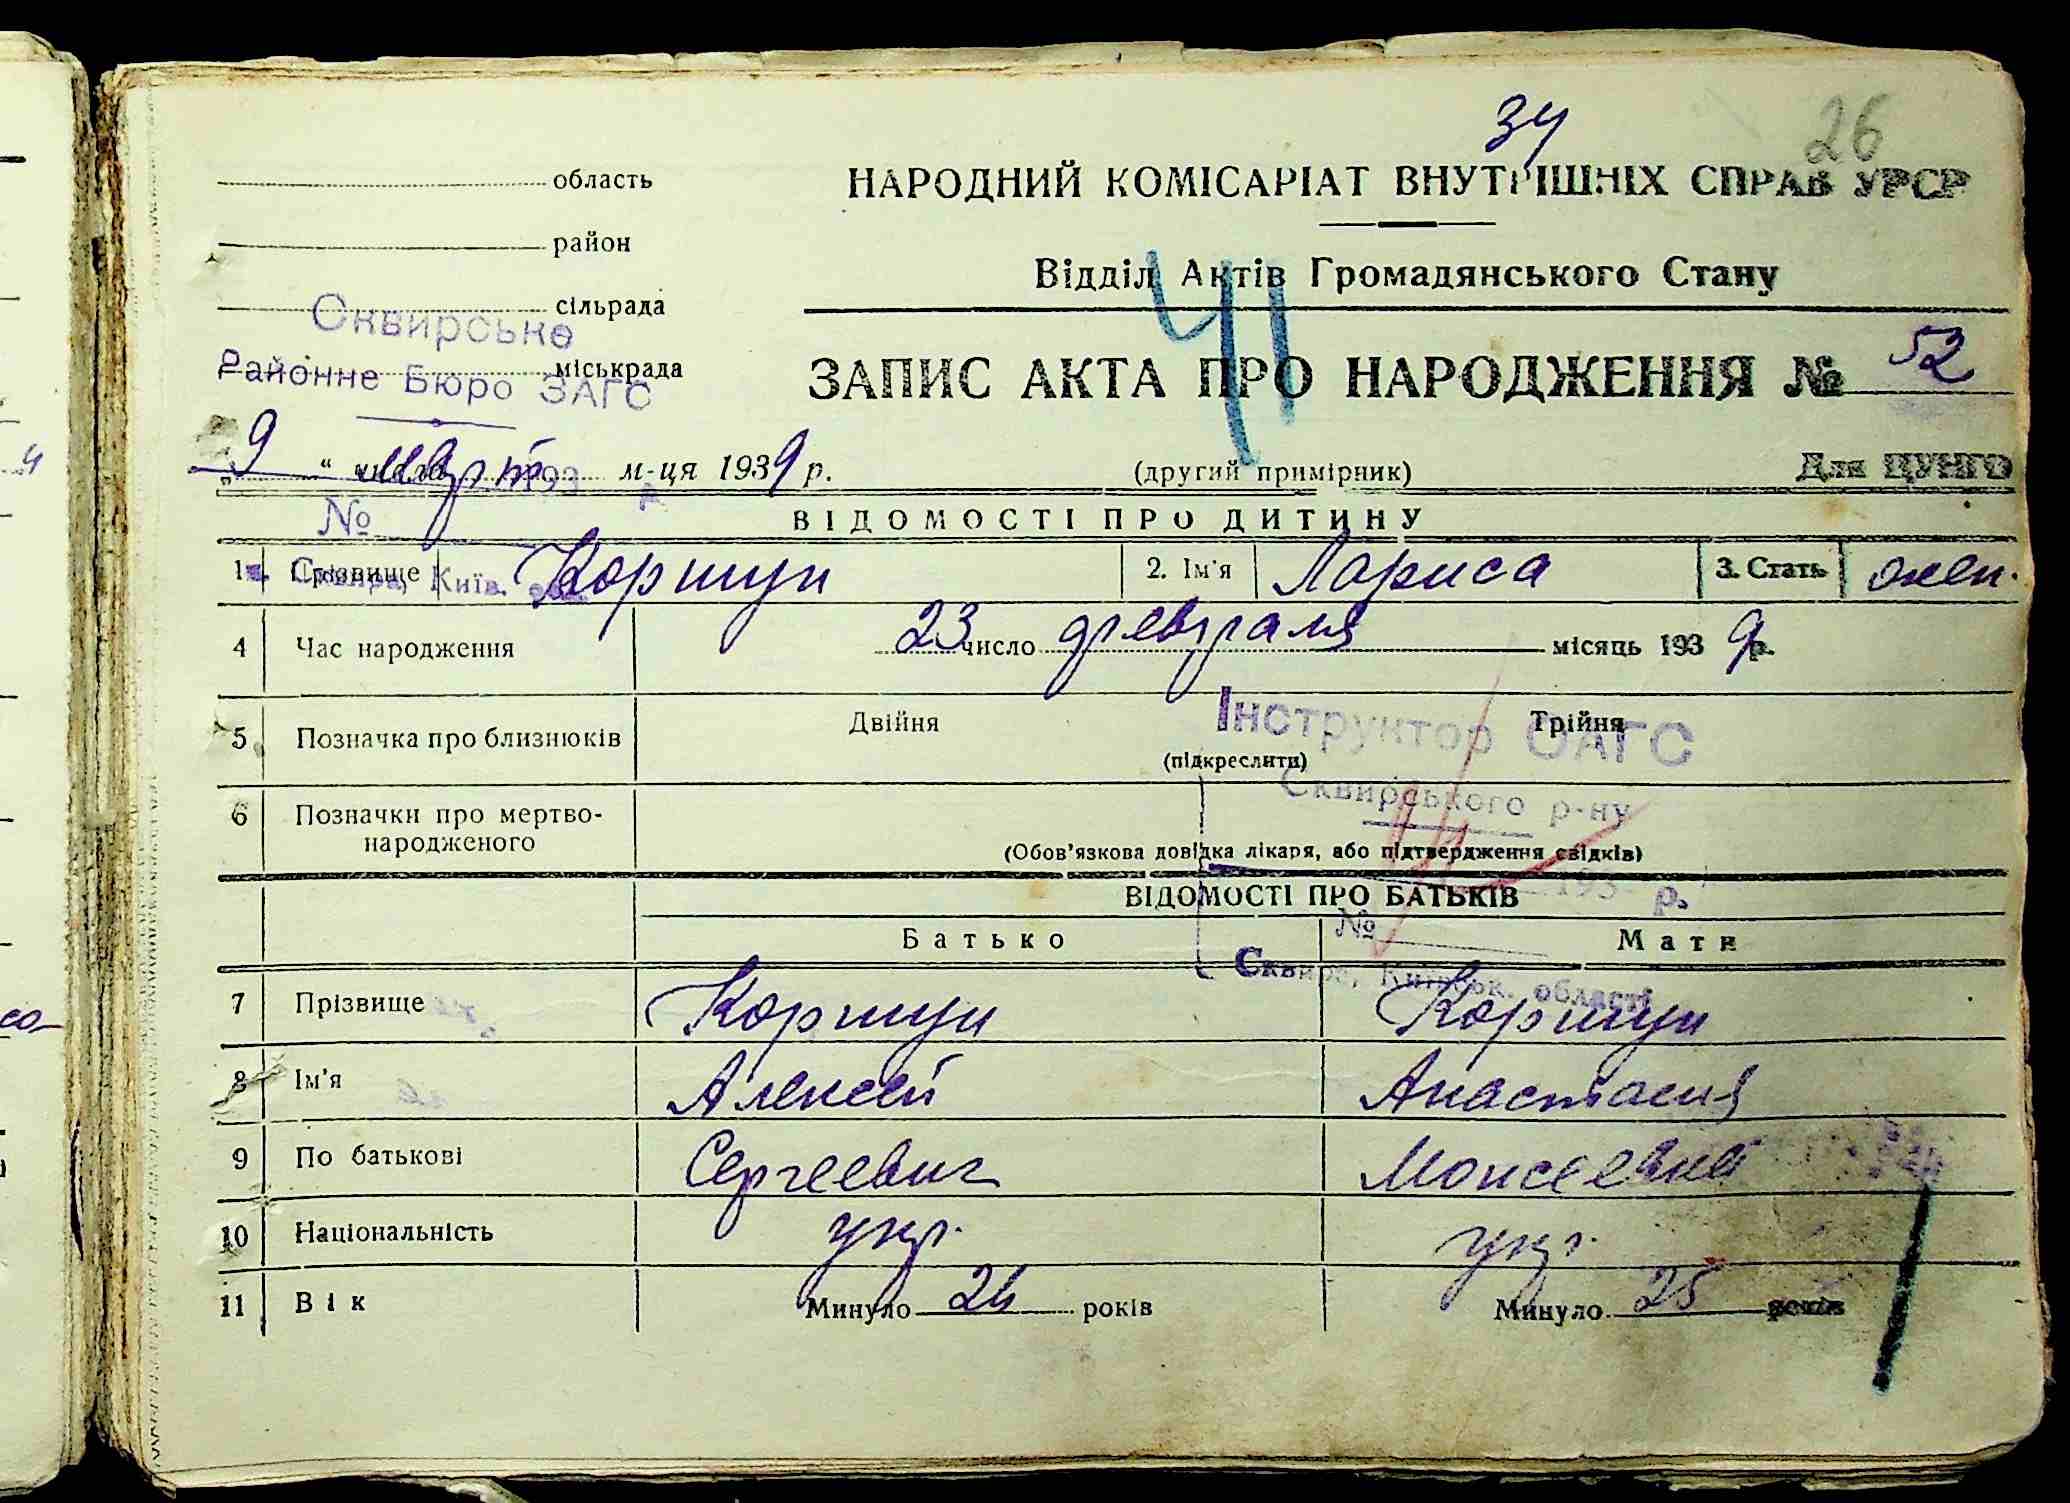 34
26
область
НАРОДНИЙ КОМІСАРІАТ ВНУТРІШНІХ СПРАВ УРСР
район
Відділ Актів Громадянського Стану
41
сільрада
Сквирське
міськрада
Районне Бюро ЗАГС
ЗАПИС АКТА ПРО НАРОДЖЕННЯ № 52
„ 9 “ март м-ця 1939 р.
(другий примірник)
Для ЦУНГО
193 р.
№
ВІДОМОСТІ ПРО ДИТИНУ
1 Прізвище Коршун 2. Ім'я Лариса 3. Стать жен.
Сквира, Київ. обл.
4 Час народження 23 число февраля місяць 1939 р.
5 Позначка про близнюків Двійня Трійня
(підкреслити)
Інструктор ОАГС
Сквирського р-ну
6 Позначки про мертво-
народженого
(Обов'язкова довідка лікаря, або підтвердження свідків)
193 р.
ВІДОМОСТІ ПРО БАТЬКІВ
№
Батько Мати
Сквира, Київськ. області
7 Прізвище Коршун Коршун
8 Ім'я Алексей Анастасия
9 По батькові Сергеевич Моисеевна
10 Національність укр. укр.
11 Вік Минуло 24 років Минуло 25 років